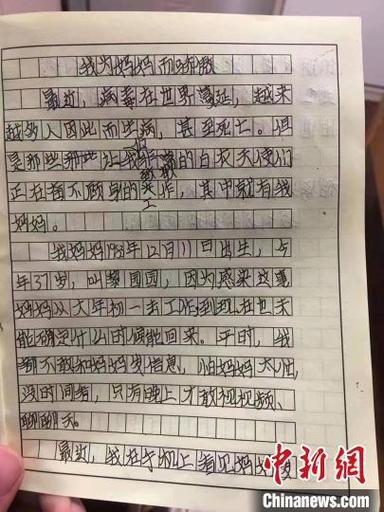 我为妈妈而骄傲
最近，病毒在世界蔓延，越来
越多人因此而生病，甚至死亡。但
是那些 的白衣天使们
正在奋不顾身的 工作，其中就有我
妈妈。
我妈妈1983年12月11日出生，今
年37岁，叫黎国圆，因为感染这事
妈妈从大年初一去工作到现在也未
能确定什么时候能回来。平时，我
都不敢和妈妈发信息，怕妈妈太忙，
没时间看，只有晚上才敢视视频、
聊聊天。
最近，我在手机上看见妈妈
中新网
Chinanews.com